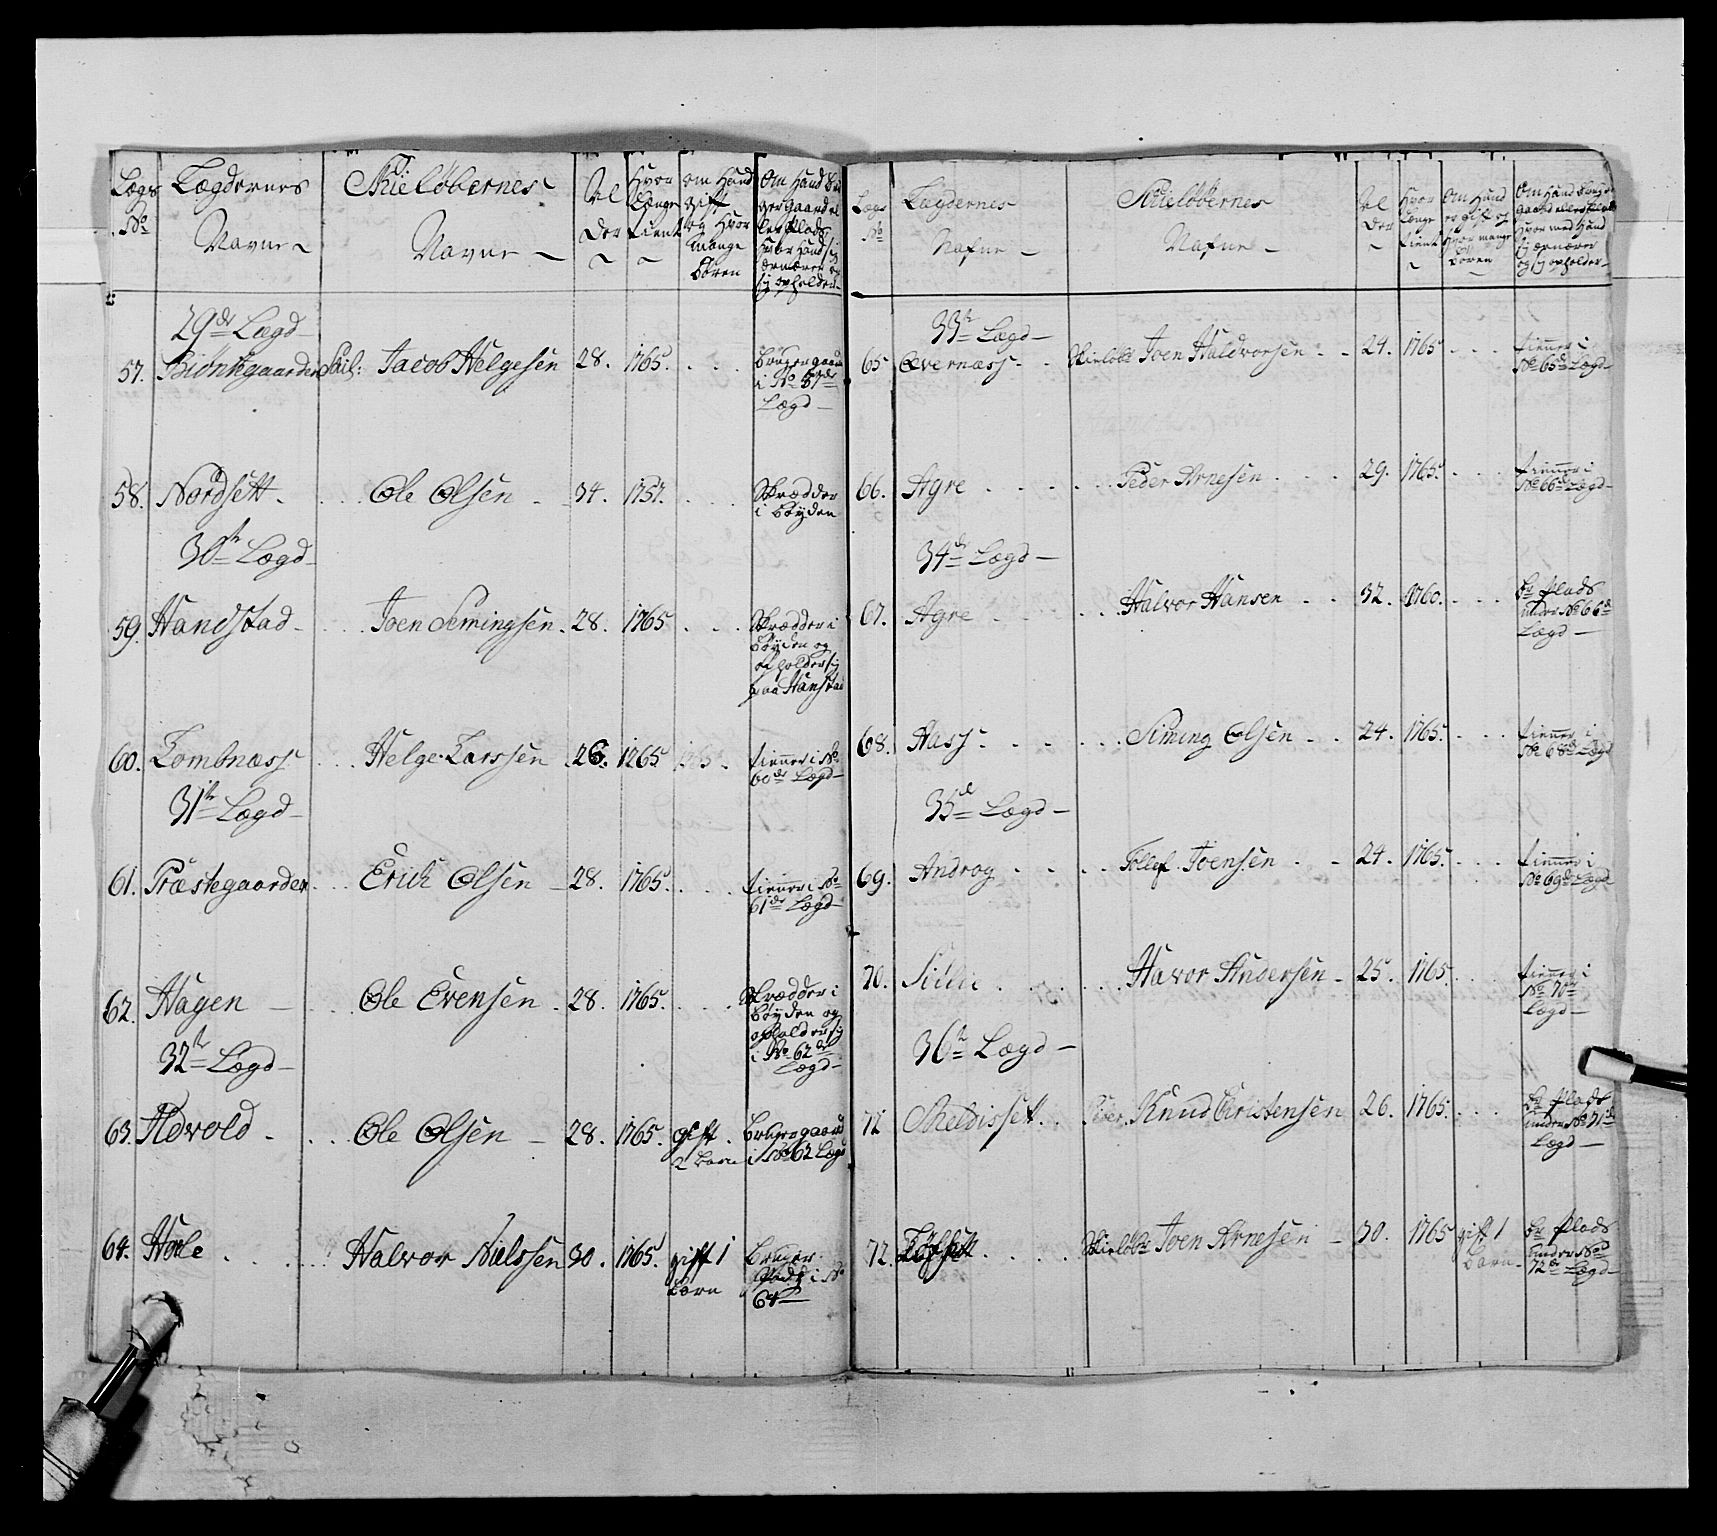 Lægs No
Lægdernes Navne
Skieløbernes Navne
Al der
Hvor Længe tient
om Hand gift og Hvor Mange Børen
Om Hand Bruger gaard eller Plads Hvor Hand sig ærnærer og sig opholder
29de Lægd
57. Biönsgaarden Jacob Helgesen 28. 1765. . . . bruger gaard
i No 57de
Lægd
58. Nordsett . . . . Ole Olsen 34. 1757. . . . Skrædder
i Böyden
30te Lægd
59. Handstad . . . Joen Semingsen. 28. 1765 . . . Skrædder i
Böyden og
opholder sig
paa Hanstad
60. Lombnæss . . . Helge Larssen 26. 1765 tienner i No
60de Lægd
31te Lægd
61. Præstegaarden . . . Erich Olsen 28. 1765. . . . tienner i No
61de Lægd
62. Hagen . . . Ole Evensen 28. 1765. . . . Skrædder i
Böyden og
opholder sig
i No 62de
Lægd
32te Lægd
63. Advold . . . Ole Olsen 28. 1765. gift 2 Børn Bruger gaard
i No 62 Lægd
64. Hole . . . Halvor Nielssen 30. 1765. gift 1 Børn Bruger
Plads i No
64
Lægs No
Lægdernes Nafne
Skieløbernes Nafne
Al der
Hvor Længe tient
Om Hand er gift og Hvor mange Børen
Om Hand Bruger gaard eller Plads Hvor med Hand sig ærnærer og sig opholder
33te Lægd
65 Evernæss Skieløb: Joen Haldvorsen 24. 1765 . . . tienner i
No 65de Lægd
66. Agre . . . Peder Arnesen 29. 1765. . . . tienner i
No 66de Lægd
34de Lægd
67. Agre . . . Halvor Hansen 32. 1760. . . . Br Plads
under No 66de
Lægd
68. Aass . . . Siming Olsen 24. 1765. . . . tienner i
No 68de Lægd
35te Lægd
69. Androg . . . Tollef Joensen 24. 1765. . . . tienner i
No 69de Lægd
70. . . . Havor Andersen 25. 1765 . . . tienner i
No 70de
Lægd
36te Lægd
71 Knud Christensen 26. 1765. . . . Br Plads
under No 71de
Lægd
72. . . . Skieløb: Joen Arnesen 30. 1765 gift 1 Børn Br Plads
under No
72de Lægd